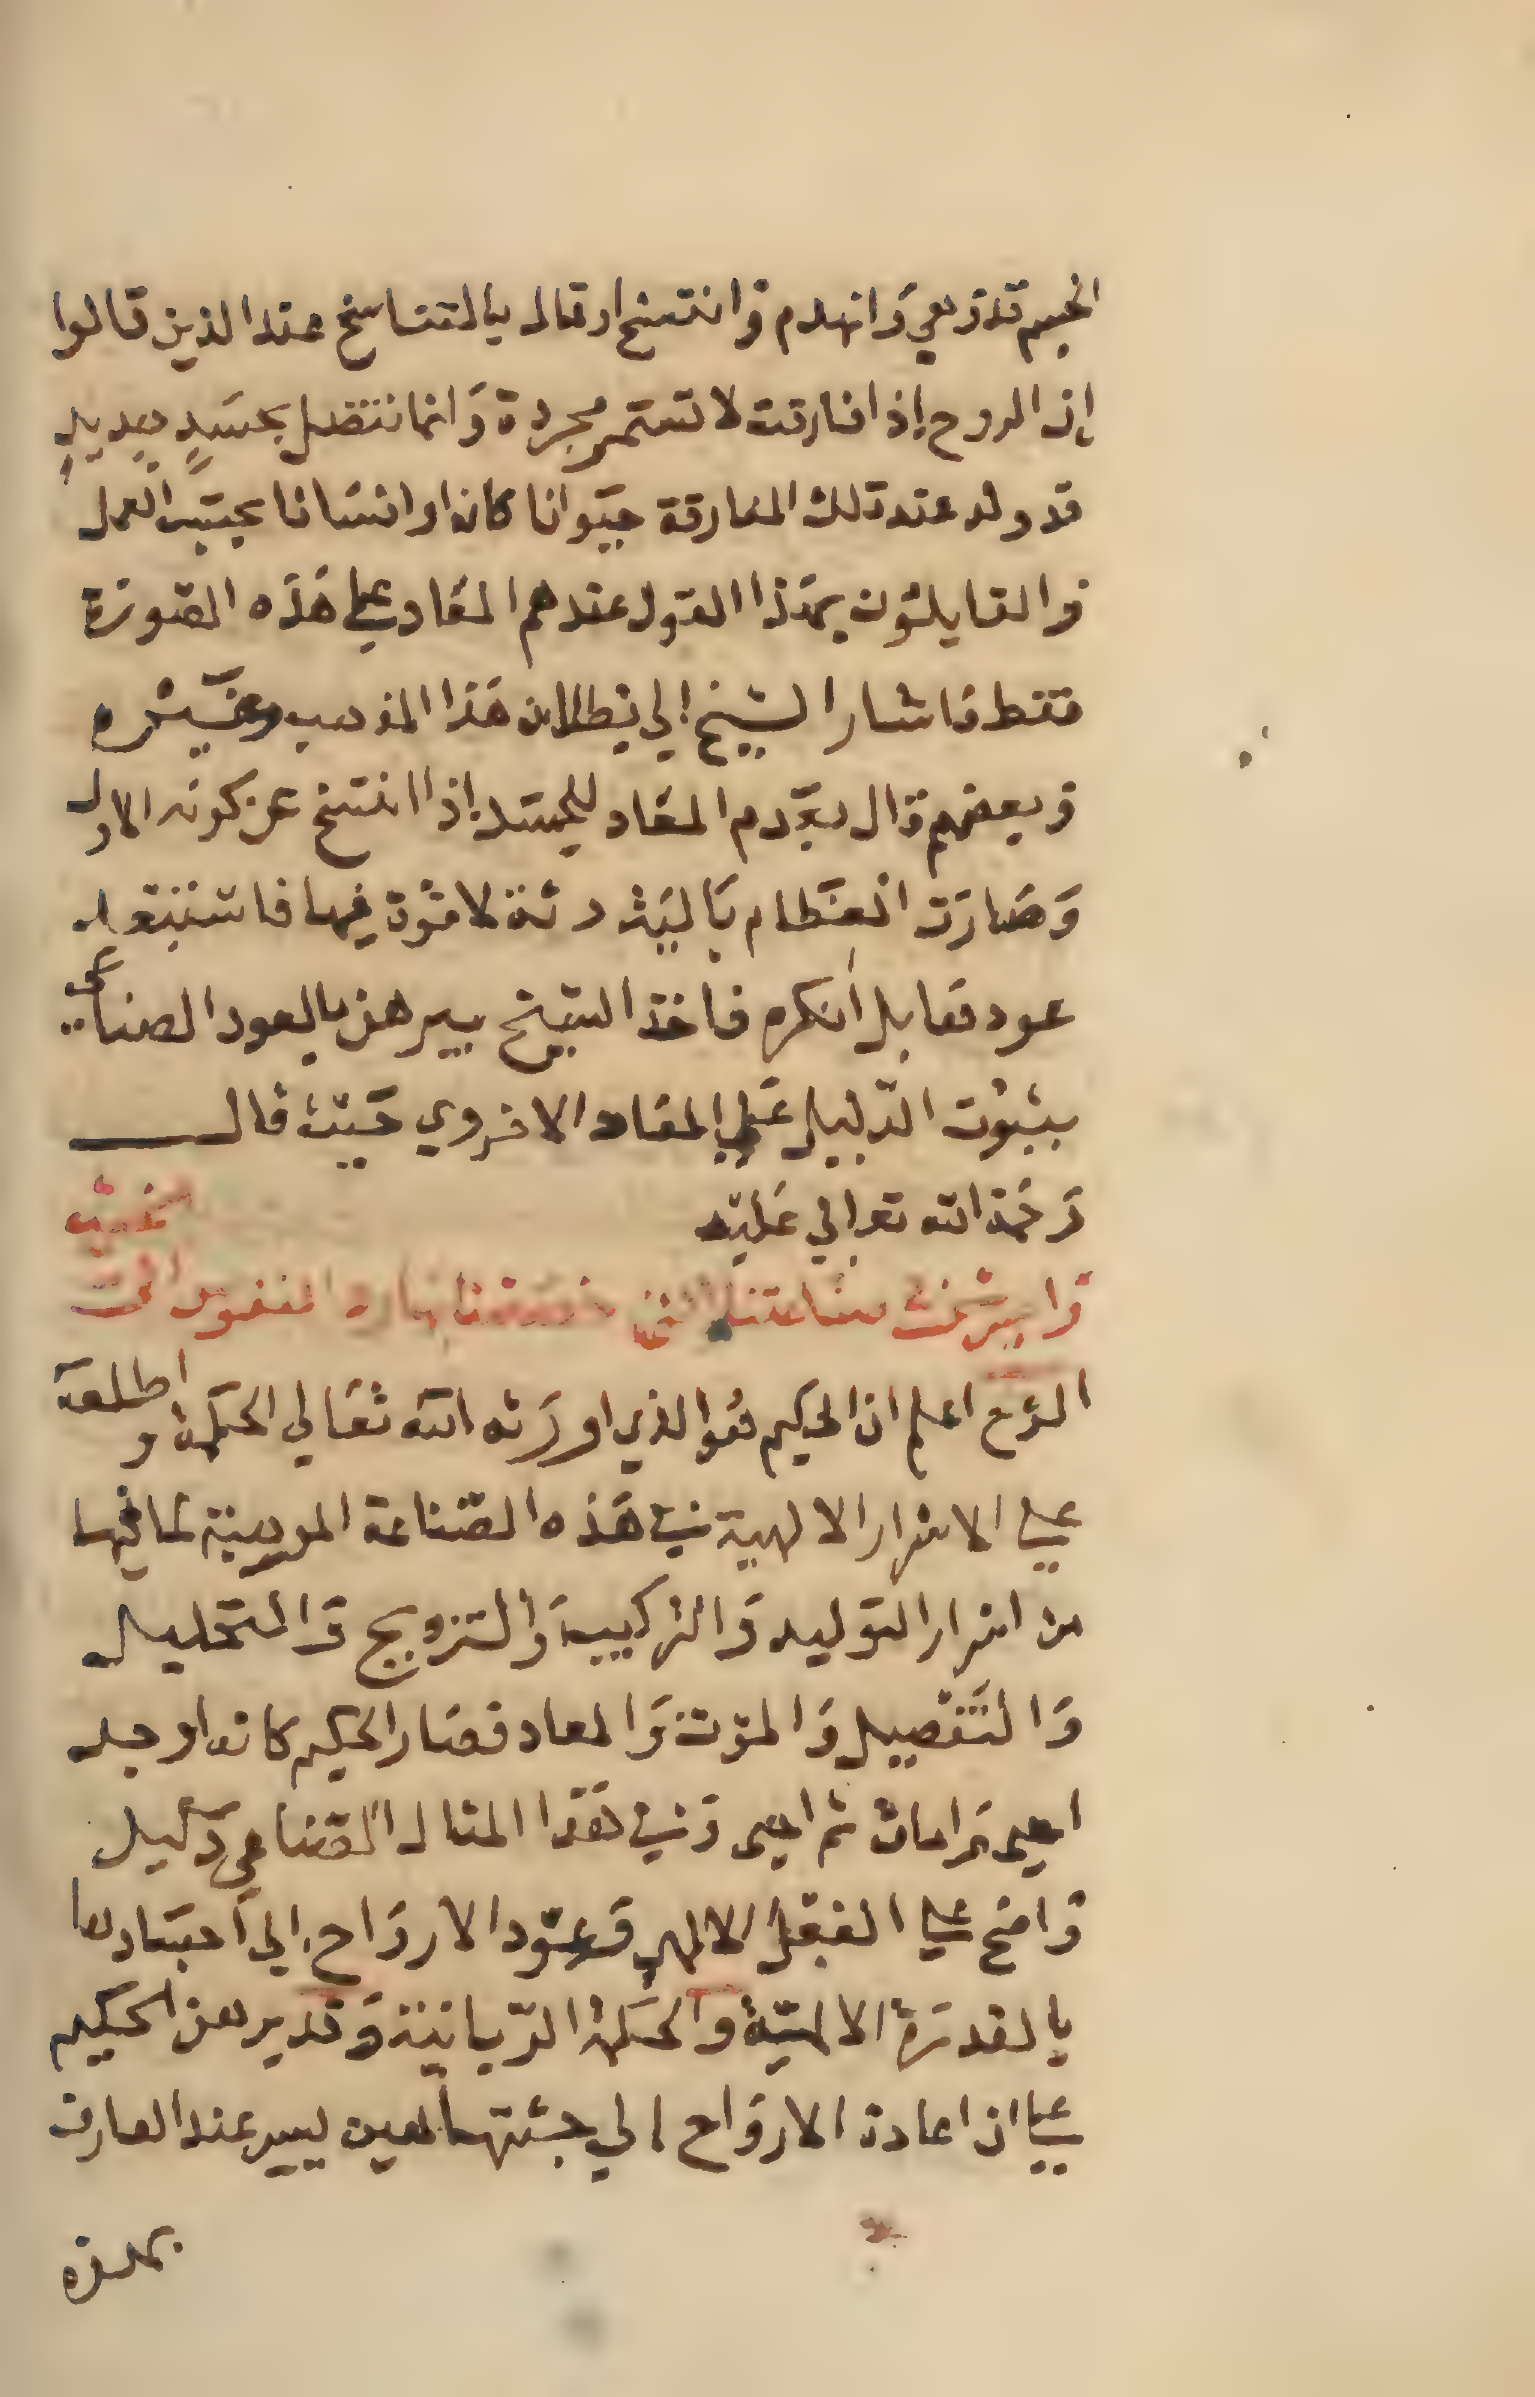 الجسم قد وهي وانهدم وانتسخ او قال بالتناسخ عند الذين قالوا
إن الروح إذا فارقت لا تستمر مجردة وَانما تتصل بجسَدٍ جديدٍ
قد ولد عند تلك المفارقة حيَوانا كان او انسَانا بحسَب العمل
والقايلون بهذا القول عندهم المعَاد على هَذه الصورَة
فقط فاشار الشيخ الي بطلان هَذا المذهب وغيره
وبعضهم قال بعدم المعَاد للجسَد إذا انتسخ عن كونه الاول
وَصَارَت العظَام بَاليَة رثة لا قوة فيها فاستبعد
عود مقابل أنكره فاخذ الشيخ يبرهن بالعود الصناعي
بثبوت الدليل علي المعَاد الاخروي حَيث قال
رَحمَة الله تعالي عَليه
وابرزت صناعتنا التي النفوس التي
الشرح اعلم ان الحكيم هُو الذي اورَثه الله تعَالي الحكمة واطلعه
علي الاسرار الالهية في هَذه الصناعة الموهبية لما فيها
من اسرار التوليد وَالتركيب وَالتزويج وَالتحليل
وَالتفصيل وَالموت وَالمعاد فصَار الحكيم كانه اوجد
احيي ثم امات ثم احيي وَفي هَذا المثال الصناعي دَليل
وَاضح علي الفعل الالهي وَعود الاروَاح إلي أجسَادها
بالقدرَة الالهيَة والحكمة الربانية وَقد برهن الحكيم
علي ان اعادة الاروَاح الي جثتها لعين يسير عند العارف
بهذه